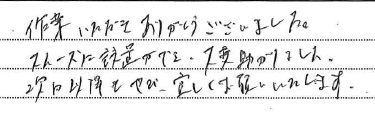 作業いただきありがとうございました。
スムーズに設置ができ、大変助かりました。
次回以降もぜひ、宜しくお願いいたします。